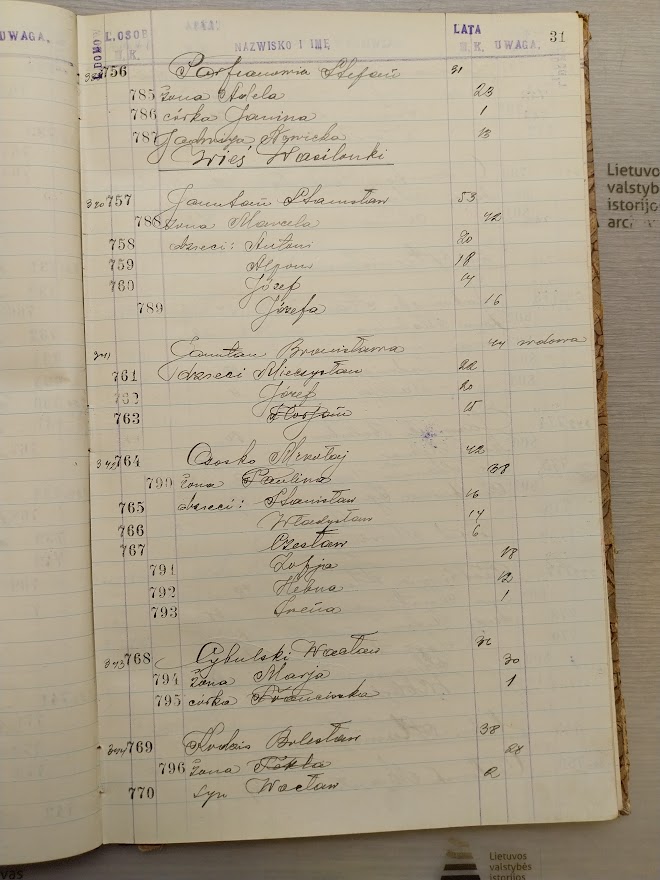 UWAGA.
L. DOMOW L. OSOB NAZWISKO I IMĘ LATA 31
M. K. M. K. UWAGA.
756 Stefan 31
785 żona Adela 23
786 córka Janina 1
787 Jadwiga 13
Wieś Wasilonki
340 757 Stanisław 53
788 żona Marcela 42
758 dzieci: Antoni 20
759 Alfons 18
760 Józef 14
789 Józefa 16
341 Bronisława 44 wdowa
761 dzieci Mieczysław 22
762 Józef 20
763 Florjan 15
342 764 Ososko Mikołaj 42
790 żona Paulina 38
765 dzieci: Stanisław 16
766 Władysław 14
767 Czesław 6
791 Zofja 18
792 Helena 12
793 Irena 1
343 768 Cybulski Wacław 32
794 żona Marja 30
795 córka Franciszka 1
344 769 Bolesław 38
796 żona Tekla 28
770 syn Wacław 2
Lietuvos
valstybė
istorijo
arc
Lietuvos
valstybės
istorijos
vas